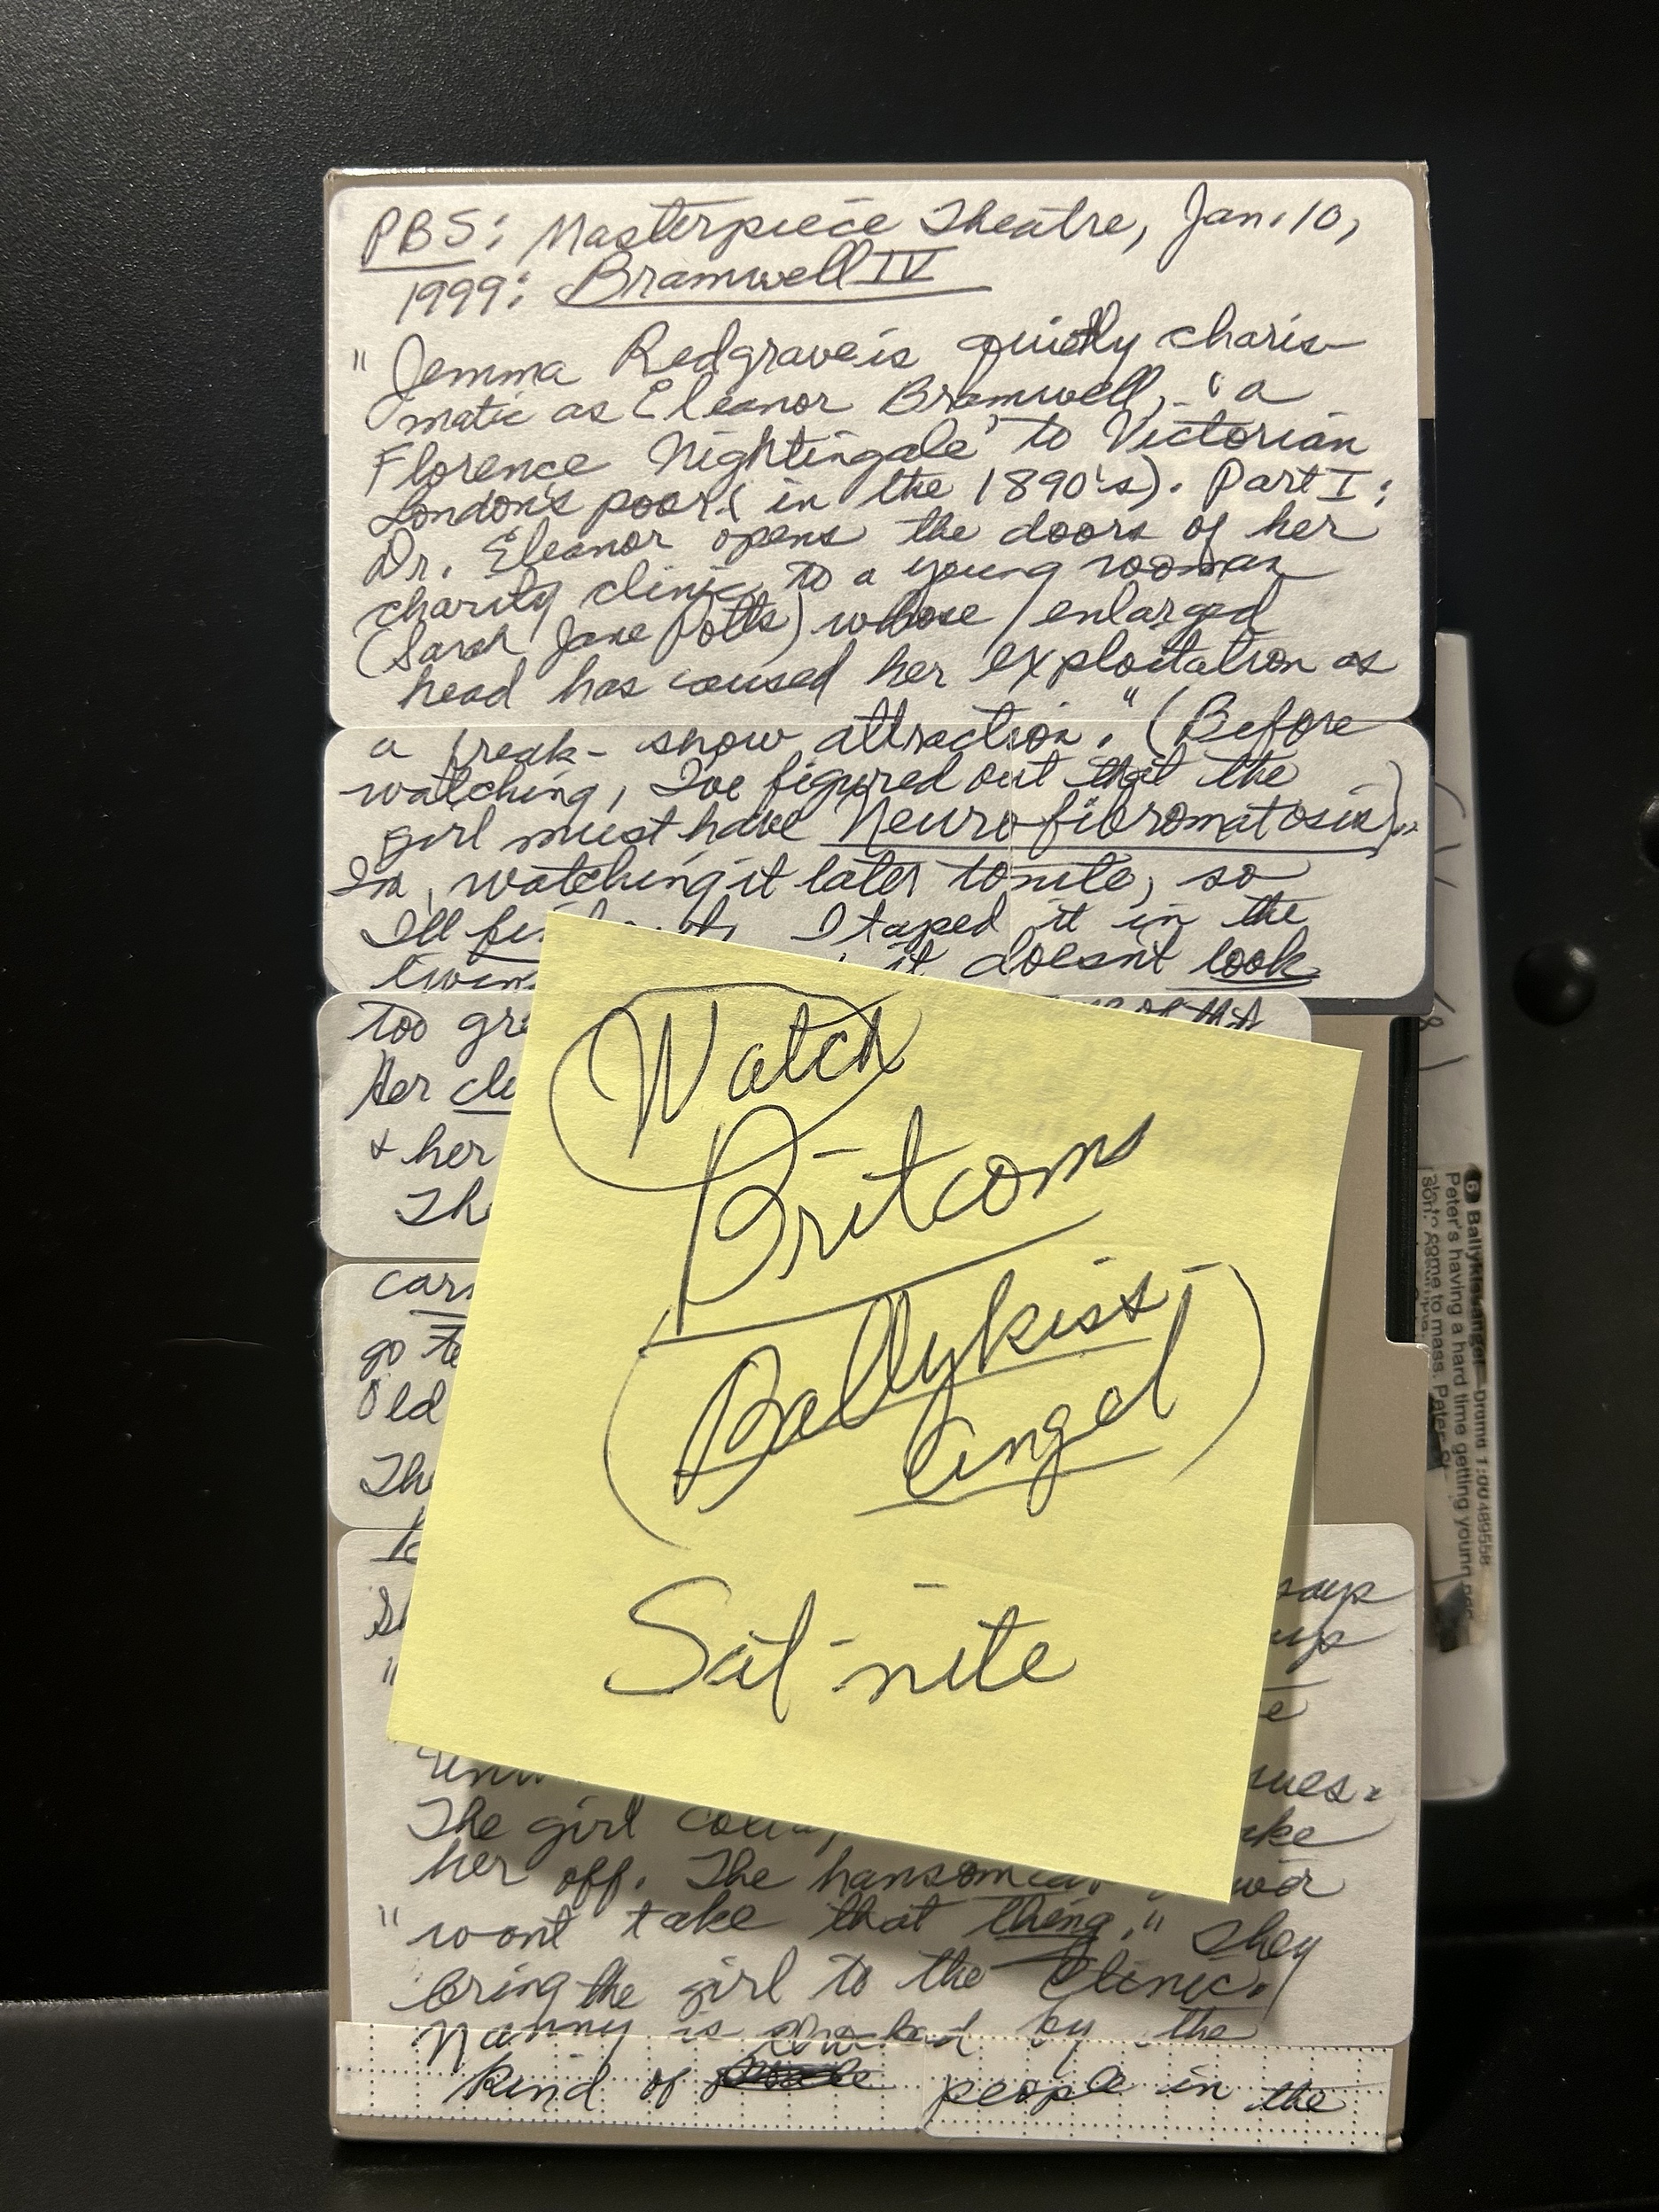 PBS: Masterpiece Theatre, Jan. 10,
1999: Bramwell IV
"Jemma Redgrave is quietly charis-
matic as Eleanor Bramwell, 'a
Florence Nightingale' to Victorian
London's poor (in the 1890's). Part I:
Dr. Eleanor opens the doors of her
charity clinic to a young woman
(Sarah Jane Potts) whose enlarged
head has caused her exploitation as
a freak-show attraction." (Before
watching, I've figured out that the
girl must have Neurofibromatosis).
I'm watching it later tonite, so
I'll I taped it in the
it doesn't look
too
Her
& her
Watch
Britcoms
(Ballykiss-
angel)
Sat-nite
go
Old
says
The girl
her off. The hansom
"wont take that thing." They
bring the girl to the Clinic.
Nanny is shocked by the
kind of people in the
6 Ballykissangel Drama 1:00 489558
Peter's having a hard time getting young
to come to mass. Peter